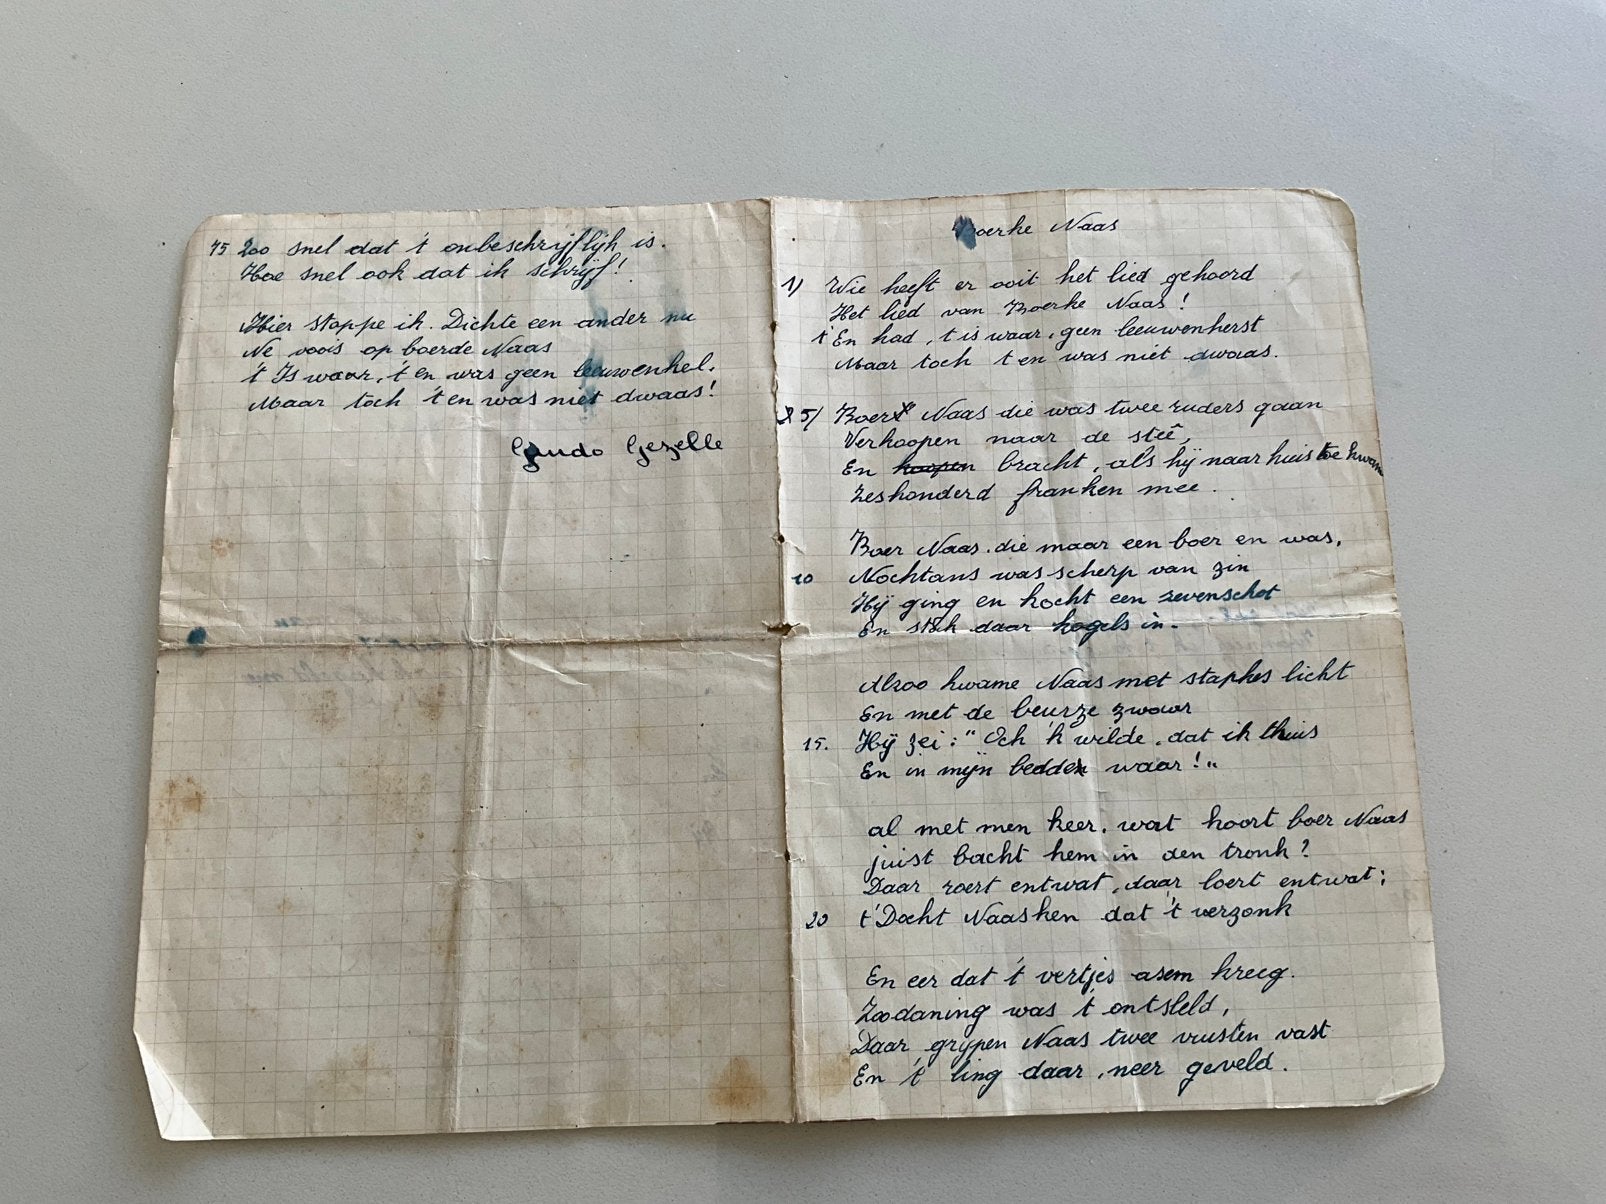 75 Zoo snel dat 't onbeschrijflijk is.
Hoe snel ook dat ik schrijf!
Hier stoppe ik. Dichte een ander nu
Ne voois op boerde Naas
't Is waar, t en was geen leeuwenhel,
Maar toch 't en was niet dwaas!
Guido Gezelle
Boerke Naas
1) Wie heeft er ooit het lied gehoord
Het lied van Boerke Naas!
't En had, t is waar, geen leeuwenherst
Maar toch t en was niet dwaas.
5) Boer Naas die was twee ruders gaan
Verkoopen naar de steê,
En koopen bracht, als hij naar huis toe kwam
Zeshonderd franken mee.
Boer Naas, die maar een boer en was,
10 Nochtans was scherp van zin
Hij ging en kocht een zevenschot
En stak daar kogels in.
Alzoo kwame Naas met stapkes licht
En met de beurze zwaar
15. Hij zei: "Och 'k wilde, dat ik thuis
En in mijn bedden waar!"
al met men keer, wat hoort boer Naas
juist bacht hem in den tronk?
Daar roert entwat, daar loert entwat;
20 t' Docht Naasken dat 't verzonk
En eer dat 't vertjes asem kreeg.
Zoodaning was 't ontsteld,
Daar grijpen Naas twee vuisten vast
En 't ling daar, neer geveld.